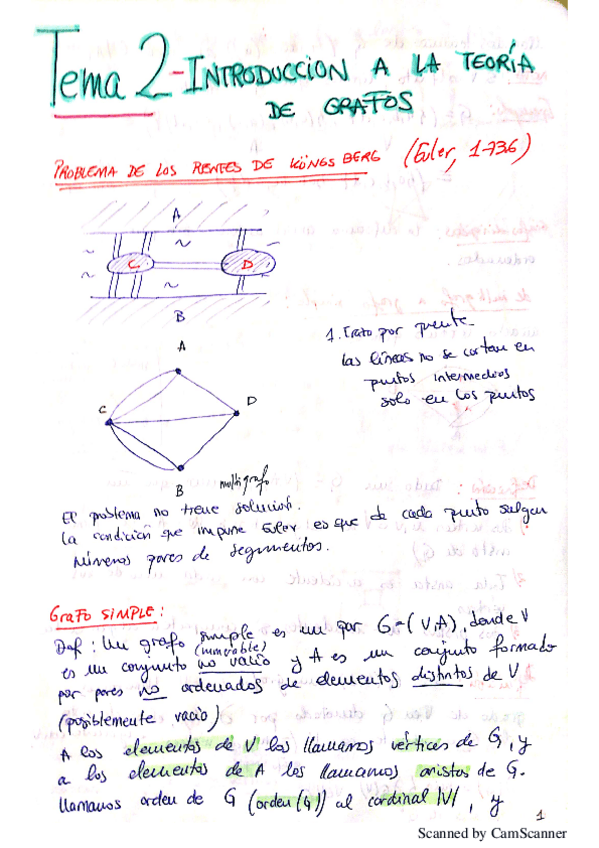 Tema 2-INTRODUCCION A LA TEORÍA
DE GRAFOS
PROBLEMA DE LOS PUENTES DE KÖNGSBERG (Euler, 1736)
A
~
~
C
D
~
~
B
1. Trato por puente
Las líneas no se cortan en
puntos intermedios
solo en los puntos
A
C
D
B
multigrafo
El problema no tiene solución.
La condición que impone Euler es que de cada punto salgan
números pares de segmentos.
GRAFO SIMPLE:
Def: Un grafo simple es un par G=(V,A), donde V
es un conjunto no vacío y A es un conjunto formado
por pares no ordenados de elementos distintos de V
(posiblemente vacío)
A los elementos de V los llamamos vértices de G, y
a los elementos de A los llamamos aristas de G.
Llamamos orden de G (orden(G)) al cardinal |V|, y
1
Scanned by CamScanner